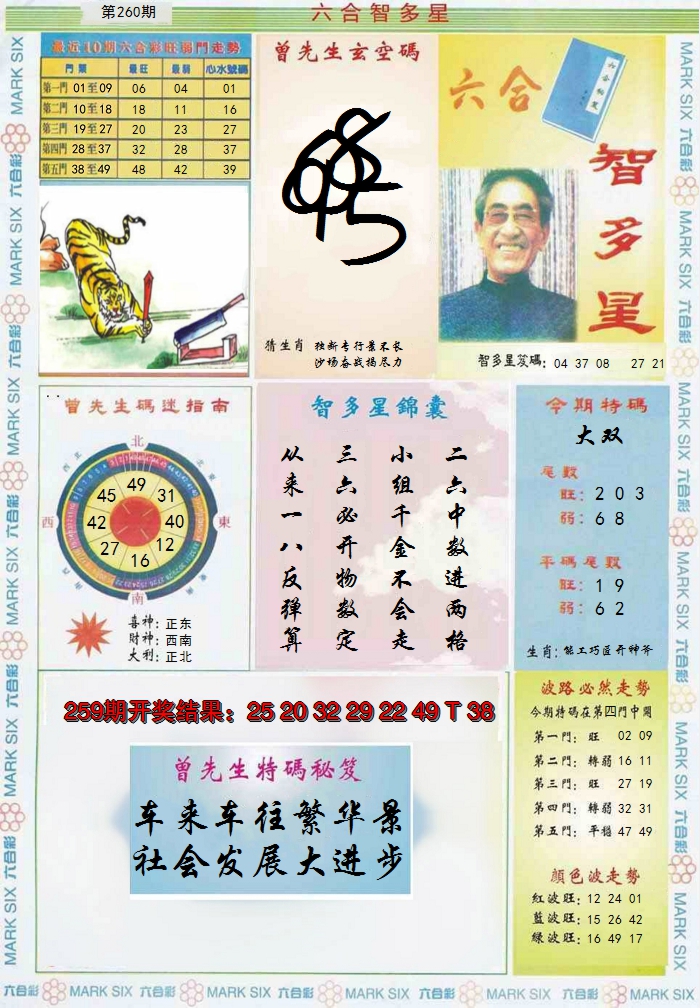 第260期
六合智多星
最近10期六合彩旺弱門走勢
門類 最旺 最弱 心水號碼
第一門 01至09 06 04 01
第二門 10至18 18 11 16
第三門 19至27 20 23 27
第四門 28至37 32 28 37
第五門 38至49 48 42 39
曾先生玄空碼
猜生肖 独断专行景不长
沙场奋战揭尽力
六合
智多星
智多星笈碼: 04 37 08 27 21
曾先生碼迷指南
北
西
東
南
49
31
40
12
16
27
42
45
喜神: 正东
財神: 西南
大利: 正北
智多星錦囊
二六中数进两格
小组千金不会走
三六必开物数定
从来一八反弹算
今期特碼
大双
尾數
旺: 2 0 3
弱: 6 8
平碼尾數
旺: 1 9
弱: 6 2
生肖: 能工巧匠开神斧
259期开奖结果: 25 20 32 29 22 49 T 38
曾先生特碼秘笈
车来车往繁华景
社会发展大进步
波路必然走勢
今期特碼在第四門中開
第一門: 旺 02 09
第二門: 轉弱 16 11
第三門: 旺 27 19
第四門: 轉弱 32 31
第五門: 平穩 47 49
顏色波走勢
紅波旺: 12 24 01
藍波旺: 15 26 42
綠波旺: 16 49 17
六合彩 MARK SIX 六合彩 MARK SIX 六合彩 MARK SIX 六合彩 MARK SIX 六合彩